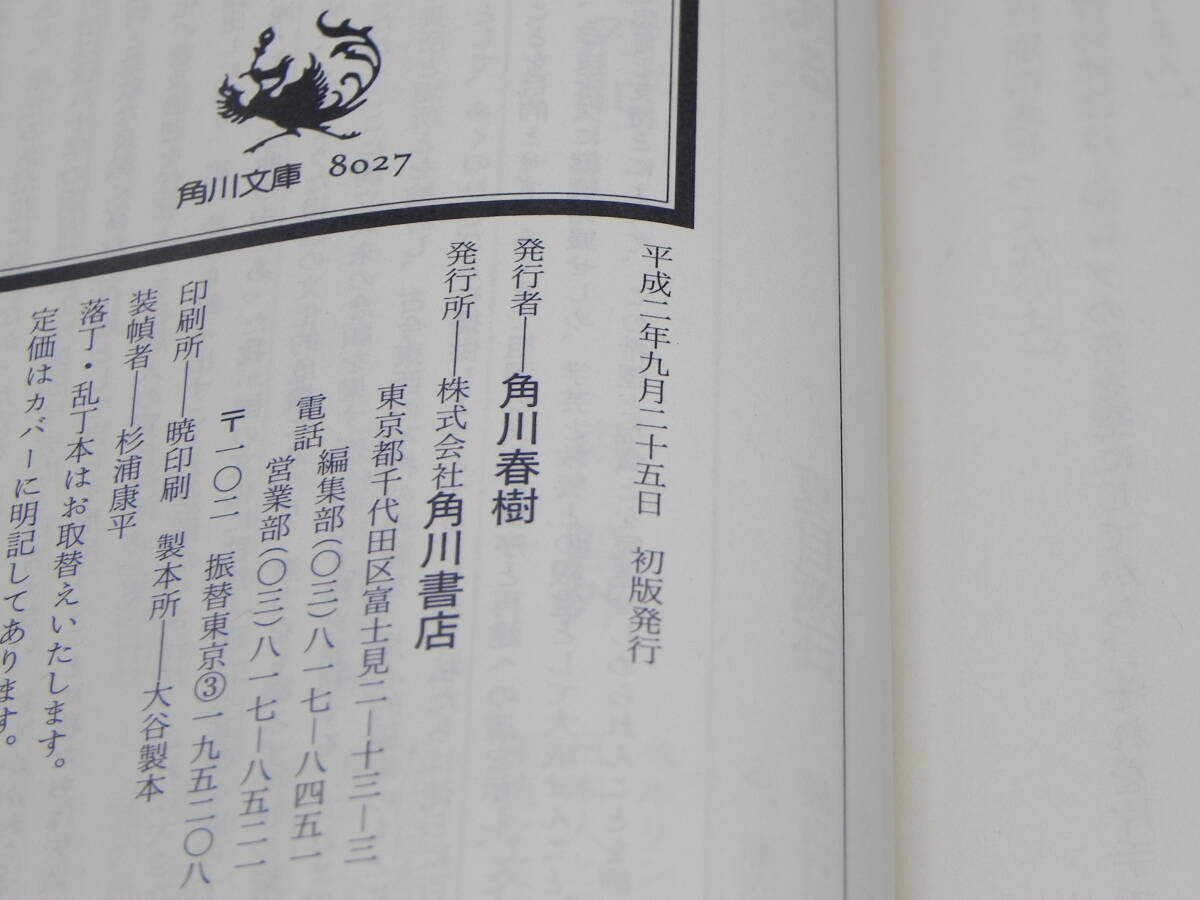 角川文庫 8027
平成二年九月二十五日 初版発行
発行者——角川春樹
発行所——株式会社角川書店
東京都千代田区富士見二―十三―三
電話 編集部(〇三)八一七―八四五一
営業部(〇三)八一七―八五二一
〒一〇二 振替東京③一九五二〇八
印刷所——暁印刷 製本所——大谷製本
装幀者——杉浦康平
落丁・乱丁本はお取替えいたします。
定価はカバーに明記してあります。